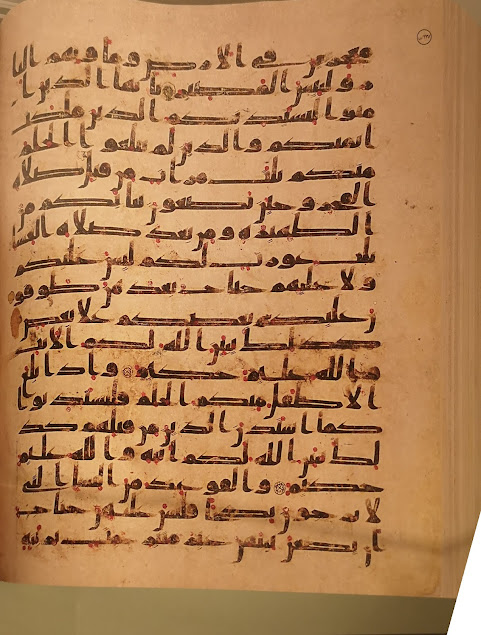 معجزين في الارض وماويهم النا
ر ولبئس المصير يايها الذين ا
منوا ليستذنكم الذين ملكت
ايمنكم والذين لم يبلغوا الحلم
منكم ثلث مرات من قبل صلاة
الفجر وحين تضعون ثيابكم من
الظهيرة ومن بعد صلاة العشا
ثلث عورات لكم ليس عليكم
ولا عليهم جناح بعدهن طوفو
ن عليكم بعضكم على بعض
كذلك يبين الله لكم الايت
والله عليم حكيم واذا بلغ
الاطفل منكم الحلم فليستذنوا
كما استذن الذين من قبلهم كذ
لك يبين الله لكم ايته والله عليم
حكيم والقوعد من النسا التي
لا يرجون نكاحا فليس عليهن جناح
ان يضعن ثيبهن غير متبرجت بزينة